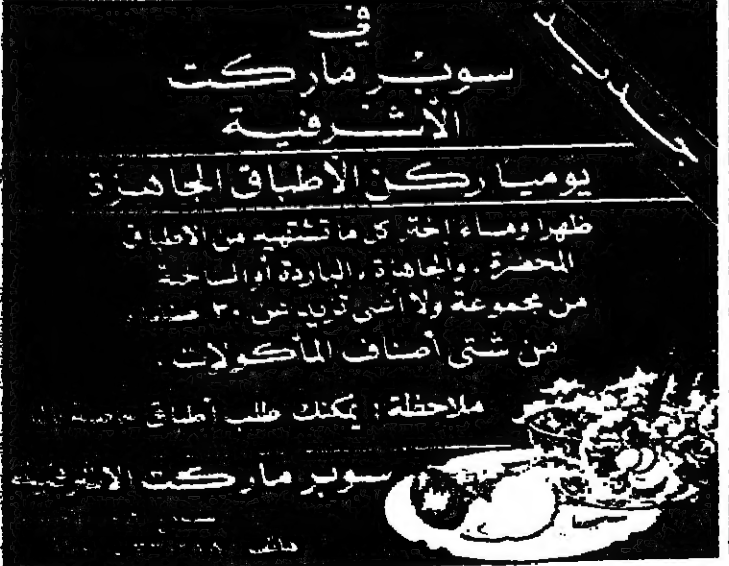 جديد
في
سوبر ماركت
الأشرفية
يوميا ركن الأطباق الجاهزة
ظهرا ومساء إختر كل ما تشتهيه من الأطباق
المحضرة، والجاهزة، الباردة أو الساخنة
من مجموعة ولا أشهى تزيد عن ٣٠ صنفا
من شتى أصناف المأكولات.
ملاحظة: يمكنك طلب أطباق
سوبر ماركت الأشرفية
هاتف